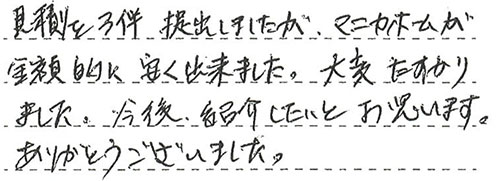 見積を3件 提出しましたが、マニカホームが
金額的に 安く出来ました。大変 たすかり
ました。今後、紹介したいと お思います。
ありがとうございました。